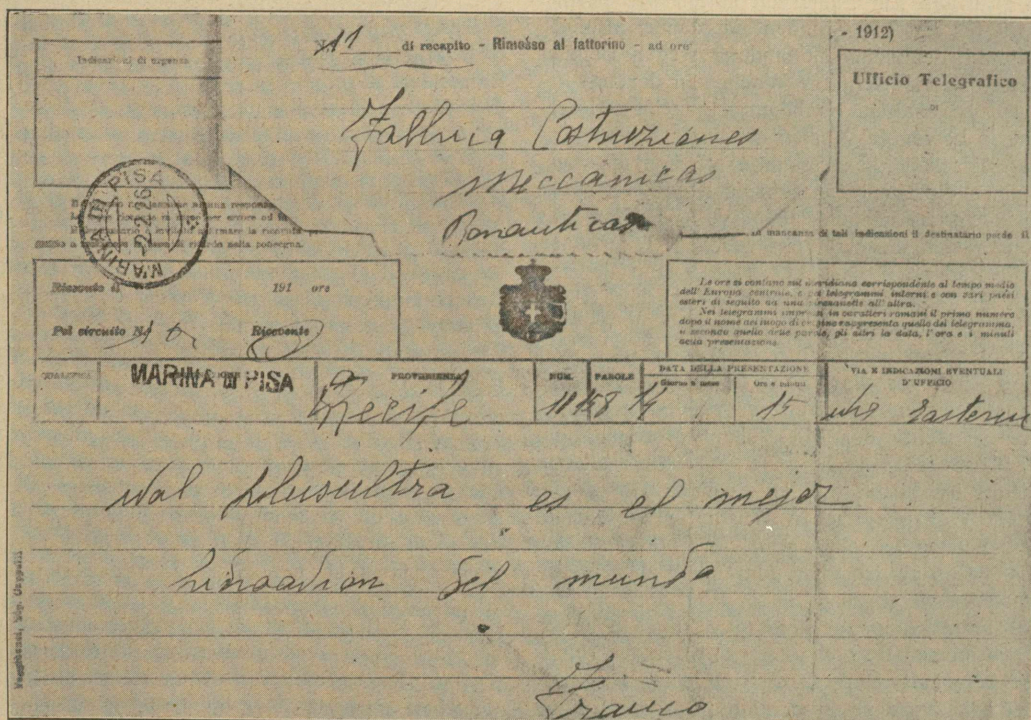 11 di recapito - Rimesso al fattorino - ad ore
- 1912)
Indicazioni di urgenza
Ufficio Telegrafico
DI
Fabbrica Costruziones
Meccanicas
Ronauticas
MARINA DI PISA
2.2.26
in mancanza di tali indicazioni il destinatario perde il
Ricevuto il 191 ore
Pel circuito N.
Ricevente
Le ore si contano sul meridiano corrispondente al tempo medio
dell'Europa centrale, e pei telegrammi interni e con vari paesi
esteri di seguito da una all'altra.
Nei telegrammi impressi in caratteri romani il primo numero
dopo il nome del luogo di origine rappresenta quello del telegramma,
il secondo quello delle parole, gli altri la data, l'ora e i minuti
della presentazione.
QUALIFICA
MARINA DI PISA
PROVENIENZA
NUM.
PAROLE
DATA DELLA PRESENTAZIONE
Giorno e mese
Ore e minuti
VIA E INDICAZIONI EVENTUALI
D'UFFICIO
Recife 15 Eastern
Wal plusultra es el mejor
hidroavion del mundo
Franco